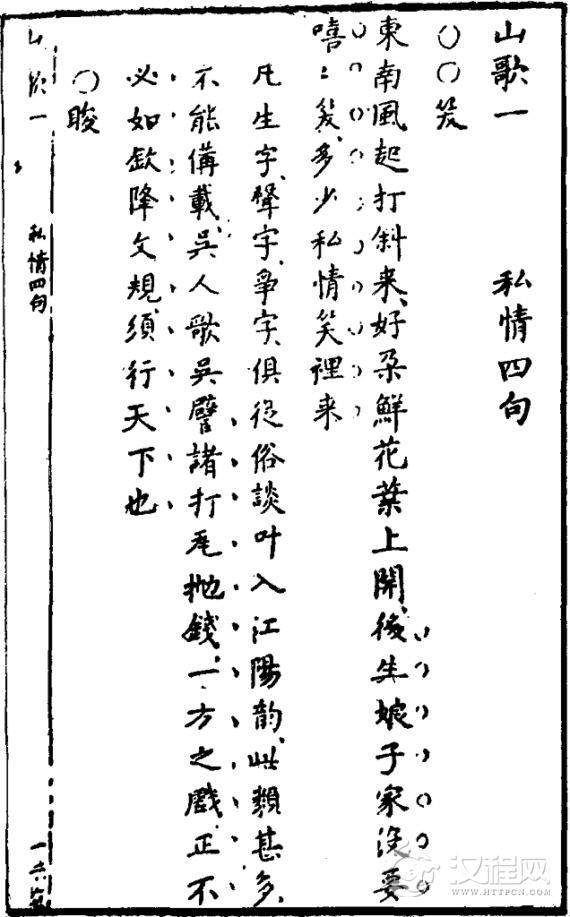 山歌一　私情四句
〇〇笑
東南風起打斜来、好朵鮮花葉上開、後生娘子家没要
嘻〻笑、多少私情笑裡来
凡生字、聲字、爭字、俱從俗談叶入江陽韵、此類甚多、
不能備載、吳人歌吳、譬諸打瓦抛錢、一方之戲、正不
必如欽降文規、須行天下也
〇睃
山歌一　私情四句
汉程网
WWW.HTTPCN.COM